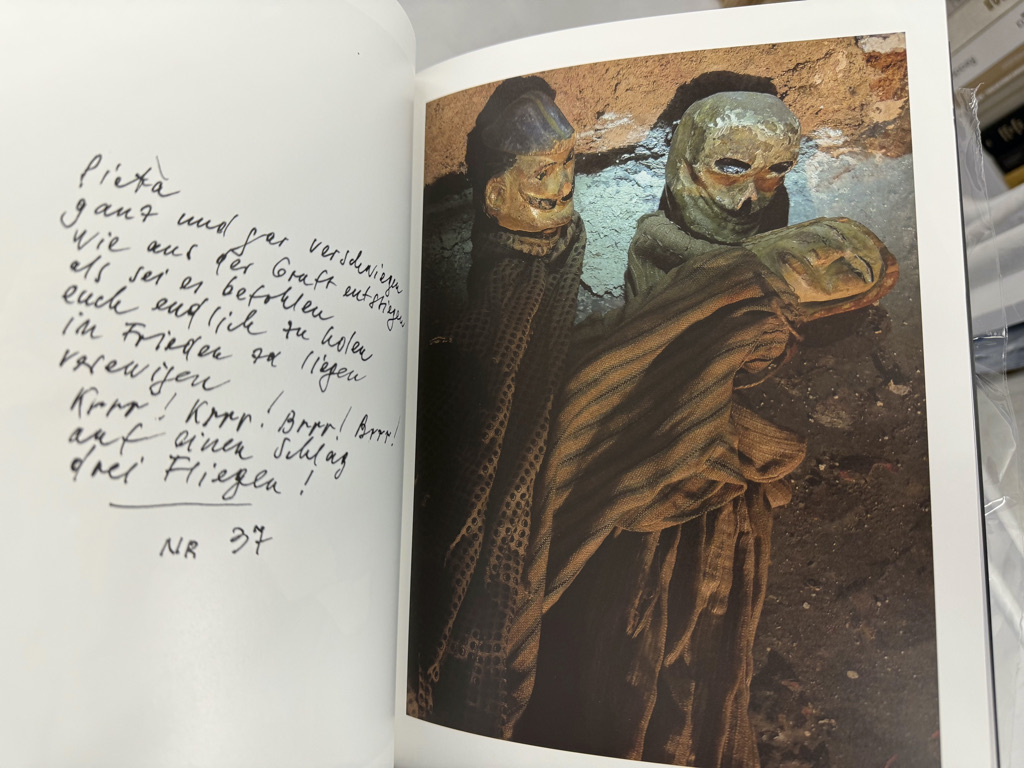 Pietà
ganz und gar verschwiegen
Wie aus der Gruft entstiegen
als sei es befohlen
euch endlich zu holen
in Frieden zu liegen
verewigen
Krrr! Krrr! Brrr! Brrr!
auf einen Schlag
drei Fliegen!
NR 37